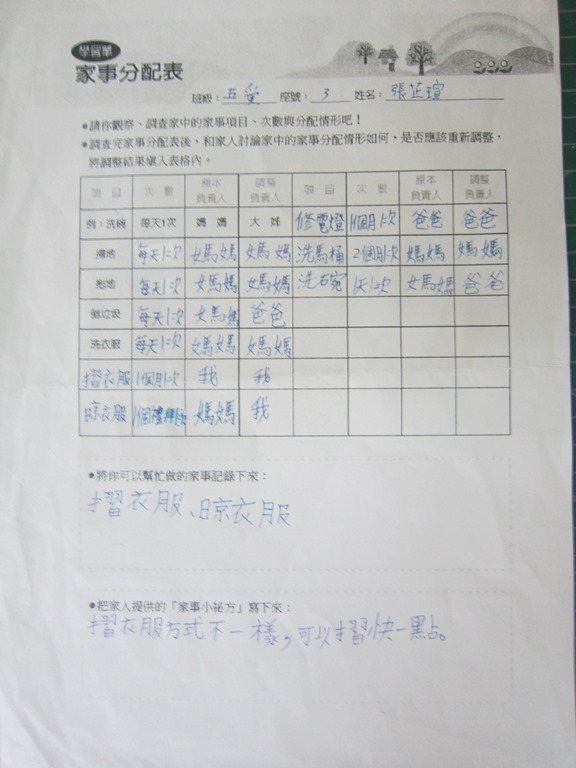 學習單
家事分配表
班級：五愛 座號：3 姓名：張芷瑄
●請你觀察、調查家中的家事項目、次數與分配情形吧！
●調查完家事分配表後，和家人討論家中的家事分配情形如何，是否應該重新調整，
將調整結果填入表格內。
項目 次數 原本負責人 調整負責人 項目 次數 原本負責人 調整負責人
例：洗碗 每天1次 媽媽 大姊 修電燈 1個月1次 爸爸 爸爸
掃地 每天1次 媽媽 媽媽 洗馬桶 2個月1次 媽媽 媽媽
拖地 每天1次 媽媽 媽媽 洗碗 1天1次 媽媽 爸爸
倒垃圾 每天1次 媽媽 爸爸
洗衣服 每天1次 媽媽 媽媽
摺衣服 1個月1次 我 我
晾衣服 1個禮拜1次 媽媽 我
●將你可以幫忙做的家事記錄下來：
摺衣服、晾衣服
●把家人提供的「家事小祕方」寫下來：
摺衣服方式不一樣，可以摺快一點。